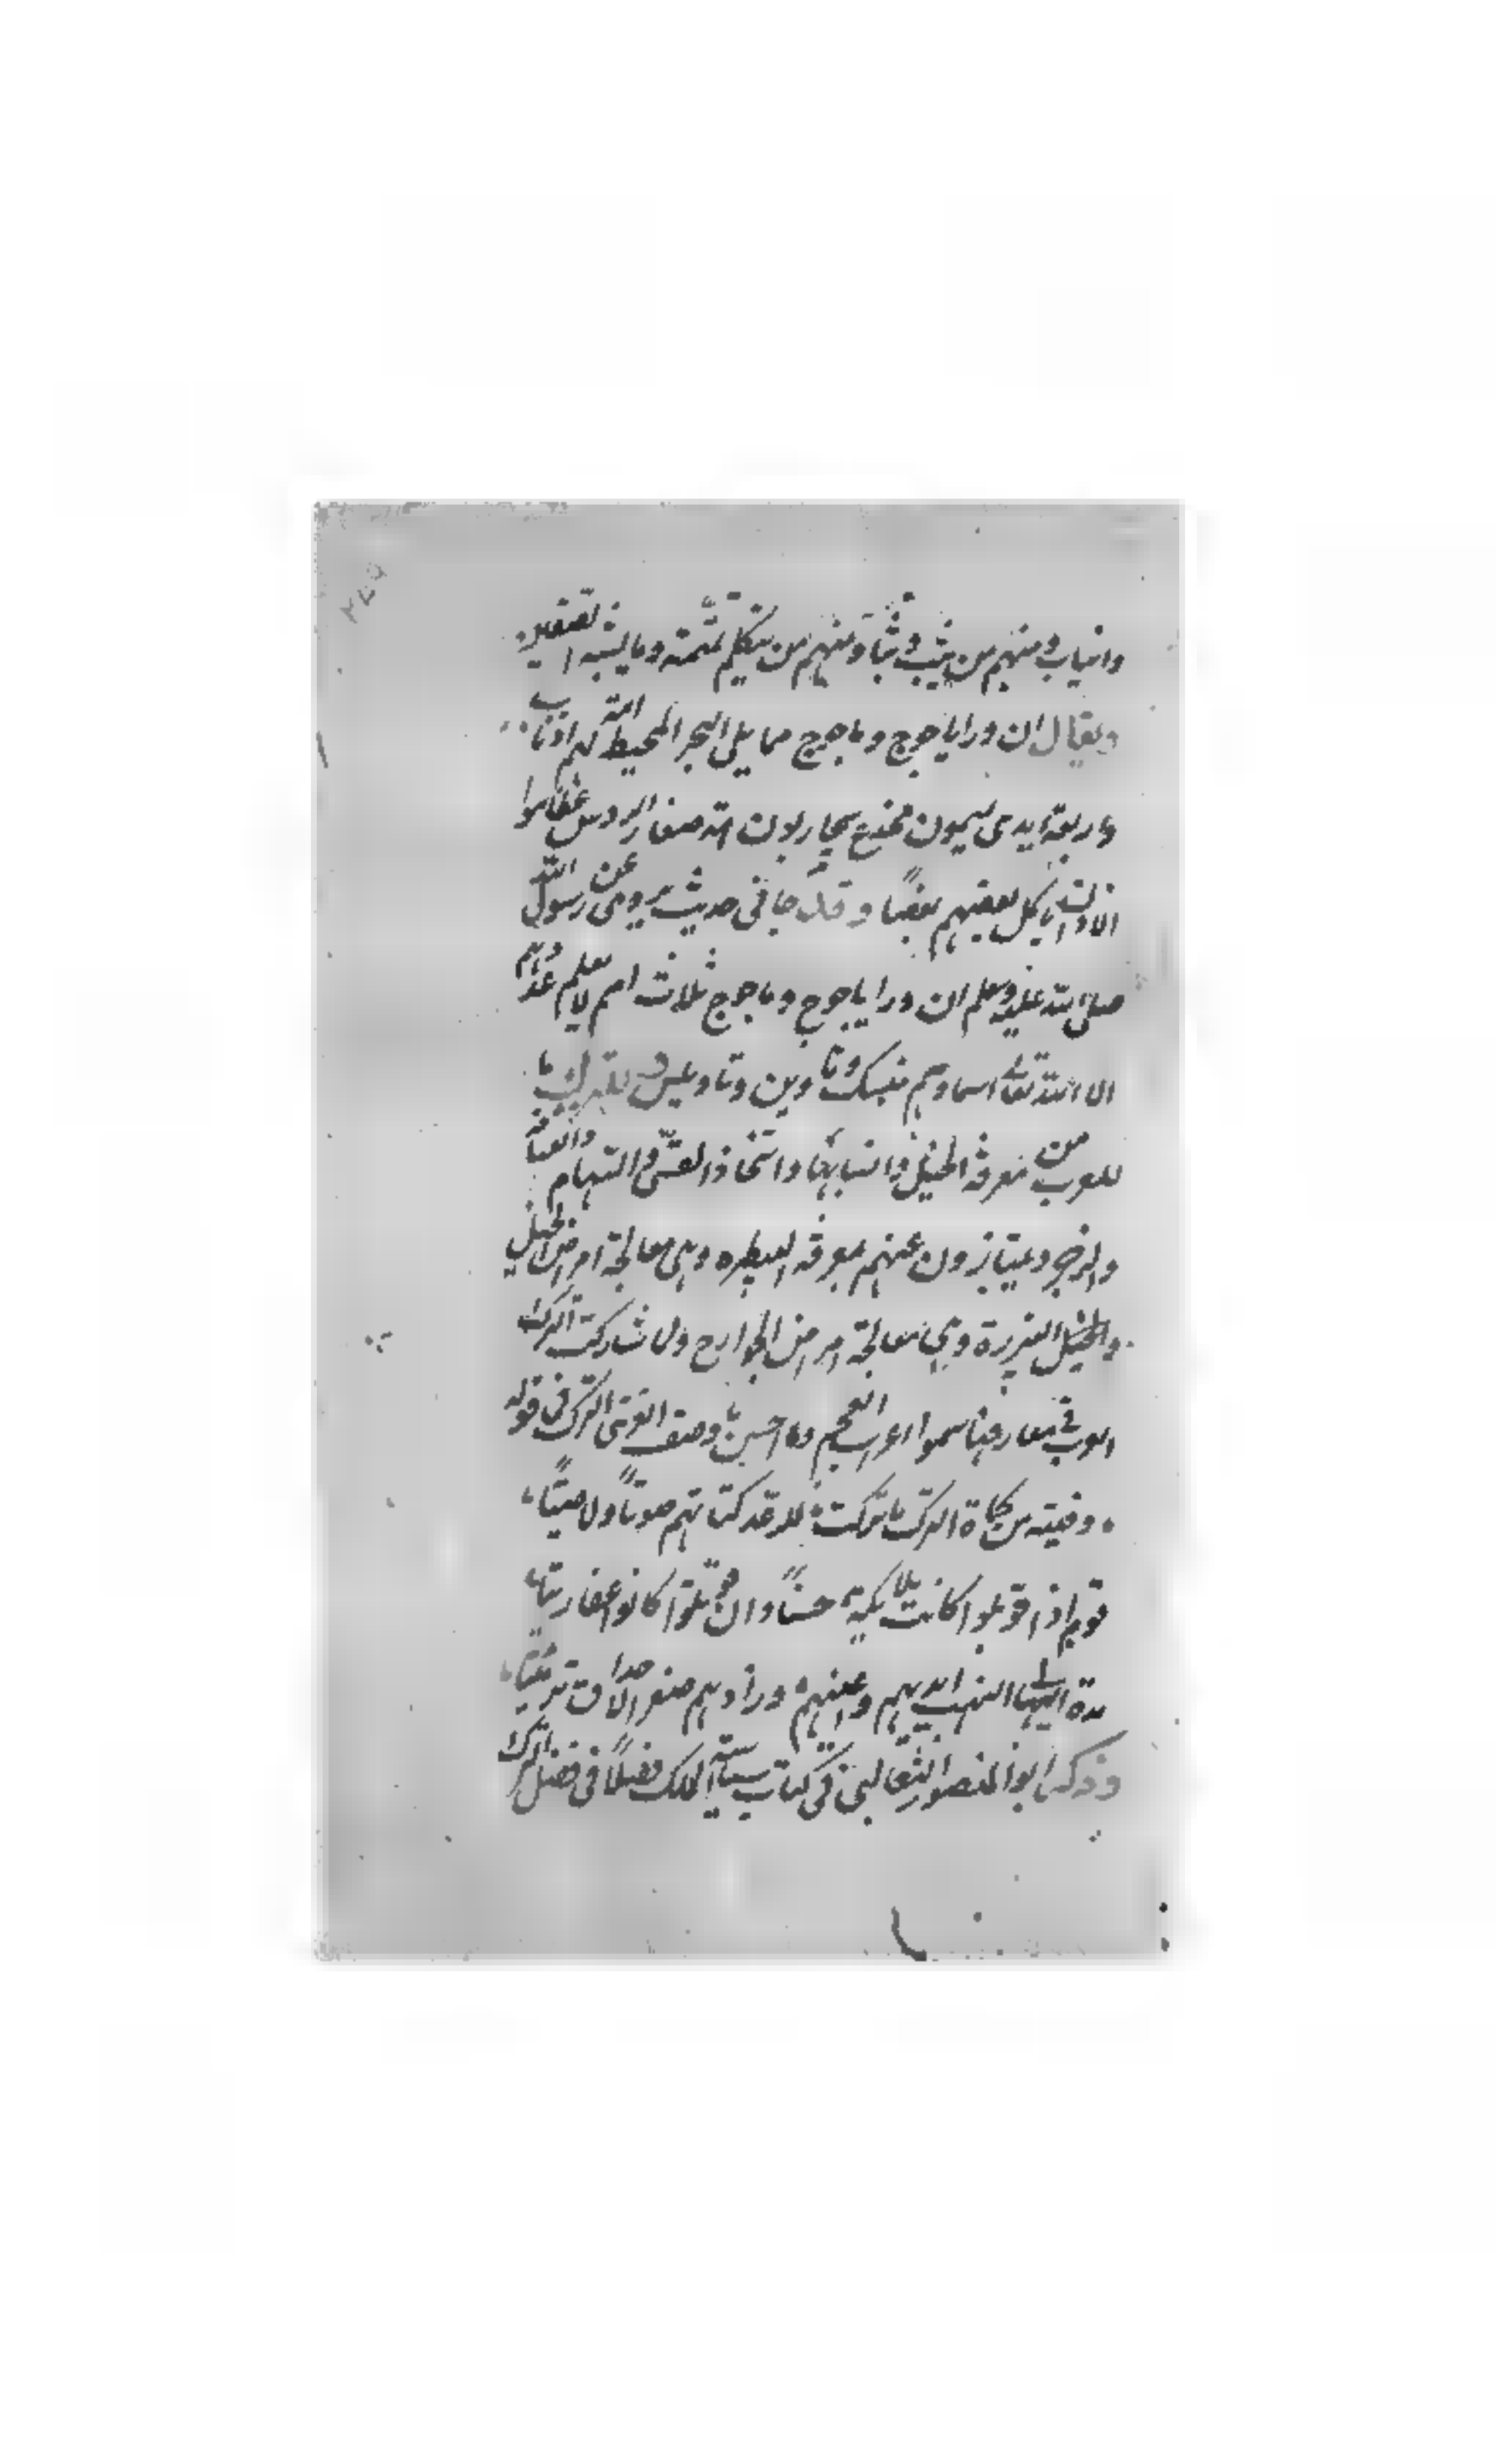 وانياب ومنهم من يثب وثبا ومنهم من يتكلم تمتمة وما يشبه التصفير
ويقال ان ورا ياجوج وماجوج مما يلى البحر المحيط امة لهم اذناب
واربعة ايدى يسمون يحاربون امة صغار الروس عظاموا
الاذان ياكل بعضهم بعضًا وقد جا فى حديث يروى عن رسول الله
صلى الله عليه وسلم ان ورا ياجوج وماجوج ثلاث امم لا يعلم عددهم
الا الله تعالى اسماوهم منسك وتاوين وتاويس وللترك ما
للعرب من معرفة الخيل وانسابها واتخاذ القسى والسهام والقيافة
والزجر ويمتازون عنهم بمعرفة البيطره وهى معالجة امراض الخيل
والخيل البيزرة وهى معالجة امراض الجوارح ولما شاركت الترك
العرب فى معارفها سموا اعراب العجم وما احسن ما وصف الغزى الترك فى قوله
وفتية من كماة الترك ما تركت للرعد كباتهم صوتاً ولا صيتًا
قوم اذا قوبلوا كانت ملايكة حسناً وان قوتلوا كانوا عفاريتا
مدة الى النهب ايديهم واعينهم وزادهم صغر الاحداق تثبيتا
وذكر ابو المنصور الثعالبى فى كتاب سياسة الملك فصلاً فى فضل الترك